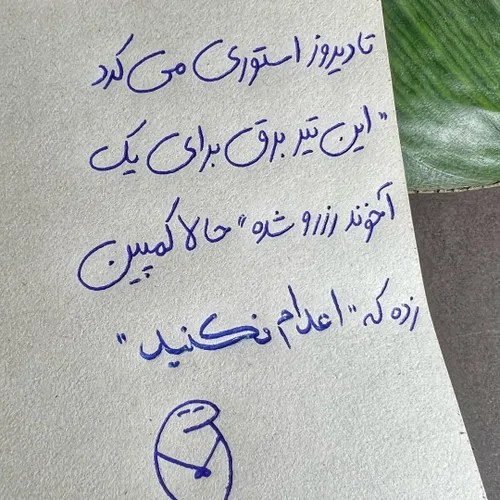 تا دیروز استوری می کرد
"این تیر برق برای یک
آخوند رزرو شده" حالا کمپین
زده که "اعدام نکنید"